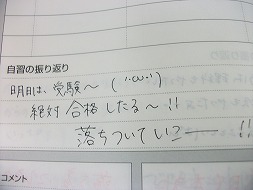 自習の振り返り
明日は、受験〜 (¨･ω･¨)
絶対合格したる〜!!
落ちついていこー!!
コメント